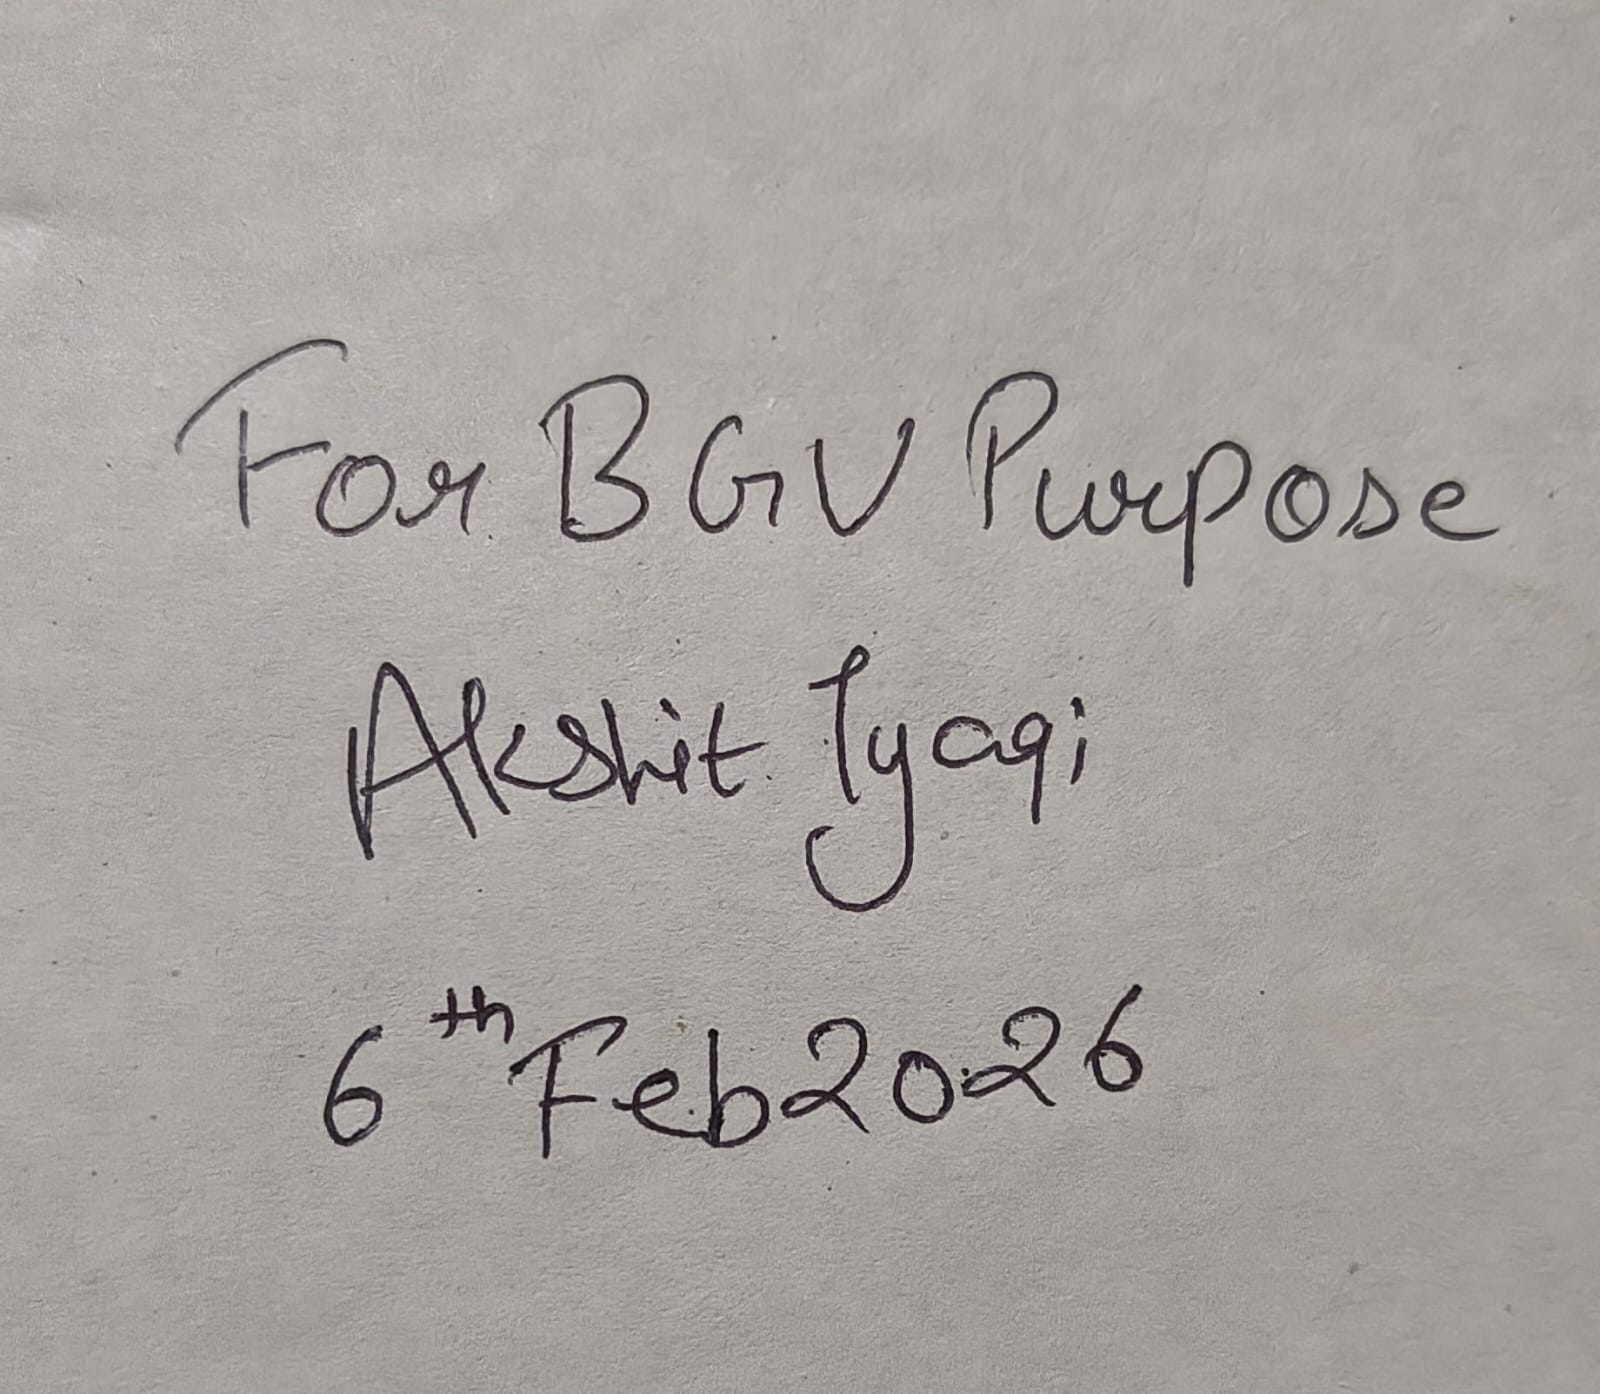 For BGV Purpose
Akshit Tyagi
6th Feb 2026